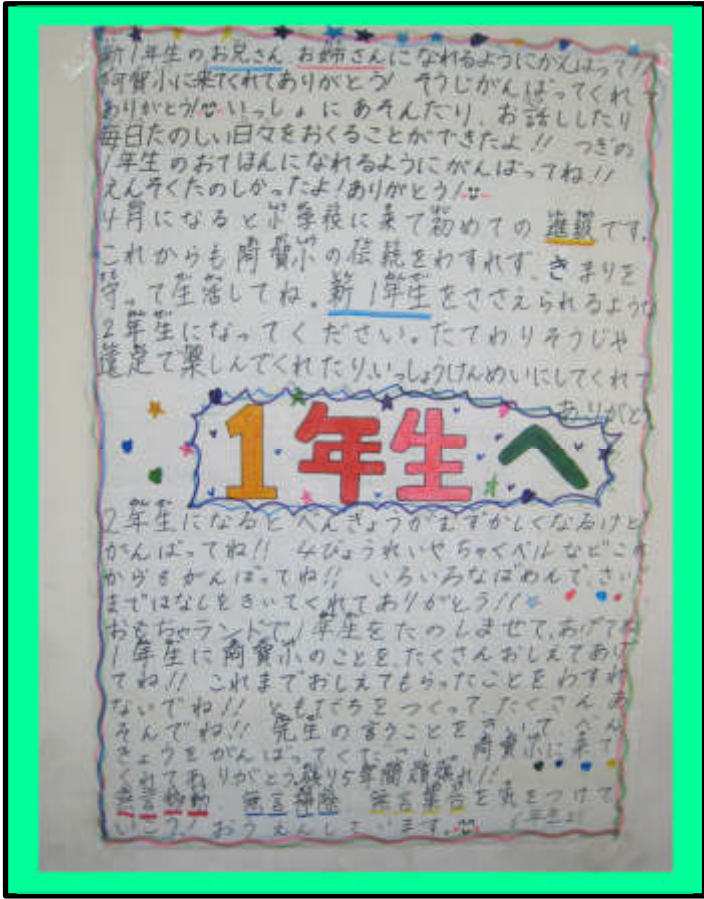 新1年生のお兄さん お姉さんになれるようにがんばって!!
阿賀小に来てくれてありがとう! そうじがんばってくれて
ありがとう! いっしょにあそんだり、お話ししたり
毎日たのしい日々をおくることができたよ!! つぎの
1年生のおてほんになれるようにがんばってね!!
えんそくたのしかったよ!ありがとう!
4月になると小学校に来て初めての進級です。
これからも阿賀小の伝統をわすれず、きまりを
守って生活してね。新1年生をささえられるような
2年生になってください。たてわりそうじや
遠足で楽しんでくれたり、いっしょうけんめいにしてくれて
ありがと
1年生へ
2年生になるとべんきょうがむずかしくなるけど
がんばってね!! 4ひょうれいやちゃくベルなどこれ
からもがんばってね!! いろいろなばめんで、さい
まではなしをきいてくれてありがとう!!
おもちゃランドで1年生をたのしませて、あげてね
1年生に阿賀小のことを、たくさんおしえてあげ
てね!! これまでおしえてもらったことをわすれ
ないでね!! ともだちをつくって、たくさんあ
そんでね!! 先生の言うことをきいて、べん
きょうをがんばってください。阿賀小に来て
くれてありがとう。残り5年間頑張れ!!
無言移動 無言掃除 無言集合を気をつけて
いこう!おうえんしています。